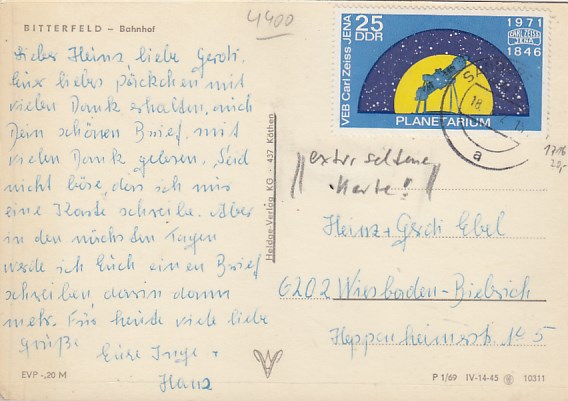 4400
BITTERFELD – Bahnhof
Lieber Heinz, liebe Gerdi.
Eux liebes Päckchen mit
vielen Dank erhalten, auch
Dein schönen Brief mit
vielen Dank gelesen. Seid
nicht böse, das ich nur
eine Karte schreibe. Aber
in den nächsten Tagen
werde ich Euch einen Brief
schreiben, darin dann
mehr. Für heute viele liebe
Grüße
Eure Inge +
Hans
EVP -,20 M
Heldge-Verlag KG · 437 Köthen
VEB Carl Zeiss JENA
25
DDR
1971
CARL ZEISS
JENA
1846
PLANETARIUM
18
a
1716
20,-
"extra seltene
Karte!"
Heinz + Gerdi Ebel
6202 Wiesbaden-Biebrich
Heppenheimerstr. 5
P 1/69 IV-14-45 10311